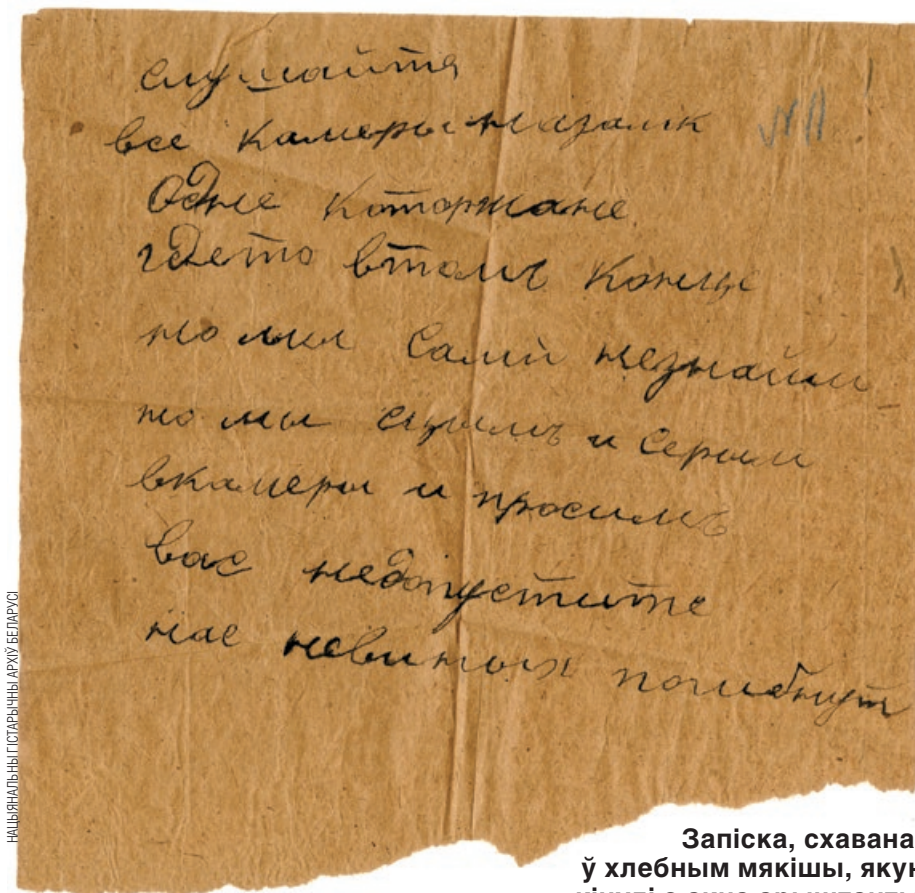 слушайте
все камеры назамк
Одне которжане
гдето втомъ конце
но мы сами незнаим
но мы сцымъ и серым
вкамеры и просимъ
вас недопустите
нас невиных погибнут
НАЦЫЯНАЛЬНЫ ГІСТАРЫЧНЫ АРХІЎ БЕЛАРУСІ
Запіска, схавана
ў хлебным мякішы, якую